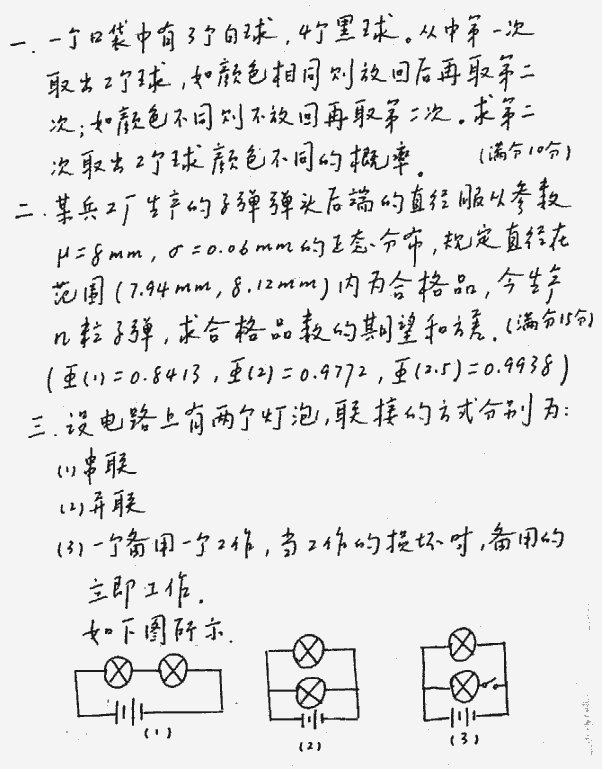 一.一个口袋中有3个白球,4个黑球。从中第一次
取出2个球,如颜色相同则放回后再取第二
次;如颜色不同则不放回再取第二次。求第二
次取出2个球颜色不同的概率。(满分10分)
二.某兵工厂生产的子弹弹头后端的直径服从参数
μ=8mm,σ=0.06mm的正态分布,规定直径在
范围(7.94mm,8.12mm)内为合格品,今生产
n粒子弹,求合格品数的期望和方差.(满分15分)
(Φ(1)=0.8413,Φ(2)=0.9772,Φ(2.5)=0.9938)
三.设电路上有两个灯泡,联接的方式分别为:
(1)串联
(2)并联
(3)一个备用一个工作,当工作的损坏时,备用的
立即工作.
如下图所示.
(1) (2) (3)